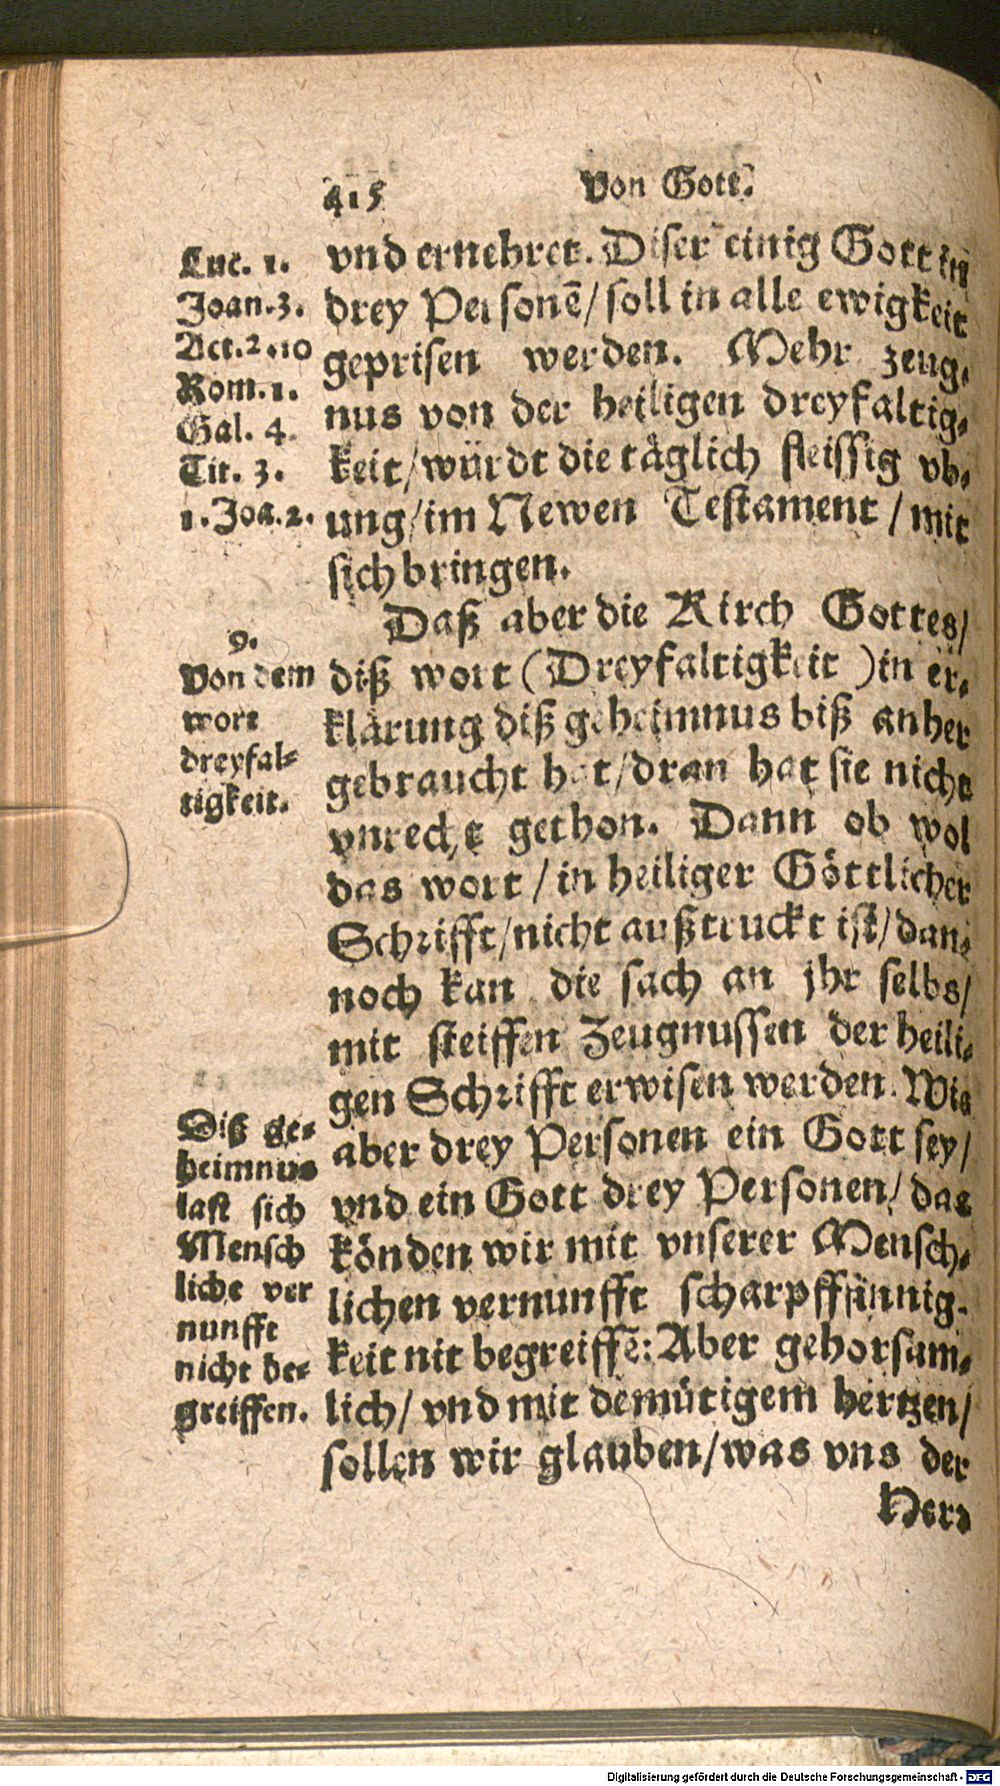 415 Von Gott.
Luc. 1.
Joan. 3.
Act. 2. 10
Rom. 1.
Gal. 4.
Tit. 3.
1. Joa. 2.
vnd ernehret. Diser einig Gott in
drey Personē / soll in alle ewigkeit
geprisen werden. Mehr zeug-
nus von der heiligen dreyfaltig-
keit / würdt die täglich fleissig vb-
ung / im Newen Testament / mit
sich bringen.
9.
Von dem
wort
dreyfal-
tigkeit.
Daß aber die Kirch Gottes /
diß wort (Dreyfaltigkeit) in er-
klärung diß geheimnus biß anher
gebraucht hat / dran hat sie nicht
vnrecht gethon. Dann ob wol
das wort / in heiliger Göttlicher
Schrifft / nicht außtruckt ist / dan-
noch kan die sach an jhr selbs /
mit steiffen Zeugnussen der heili-
gen Schrifft erwisen werden. Wie
aber drey Personen ein Gott sey /
vnd ein Gott drey Personen / das
könden wir mit vnserer Mensch-
lichen vernunfft scharpffsinnig-
keit nit begreiffē: Aber gehorsam-
lich / vnd mit demütigem hertzen /
sollen wir glauben / was vns der
Diß ge-
heimnus
last sich
Mensch
liche ver
nunfft
nicht be-
greiffen.
Herr
Digitalisierung gefördert durch die Deutsche Forschungsgemeinschaft - DFG